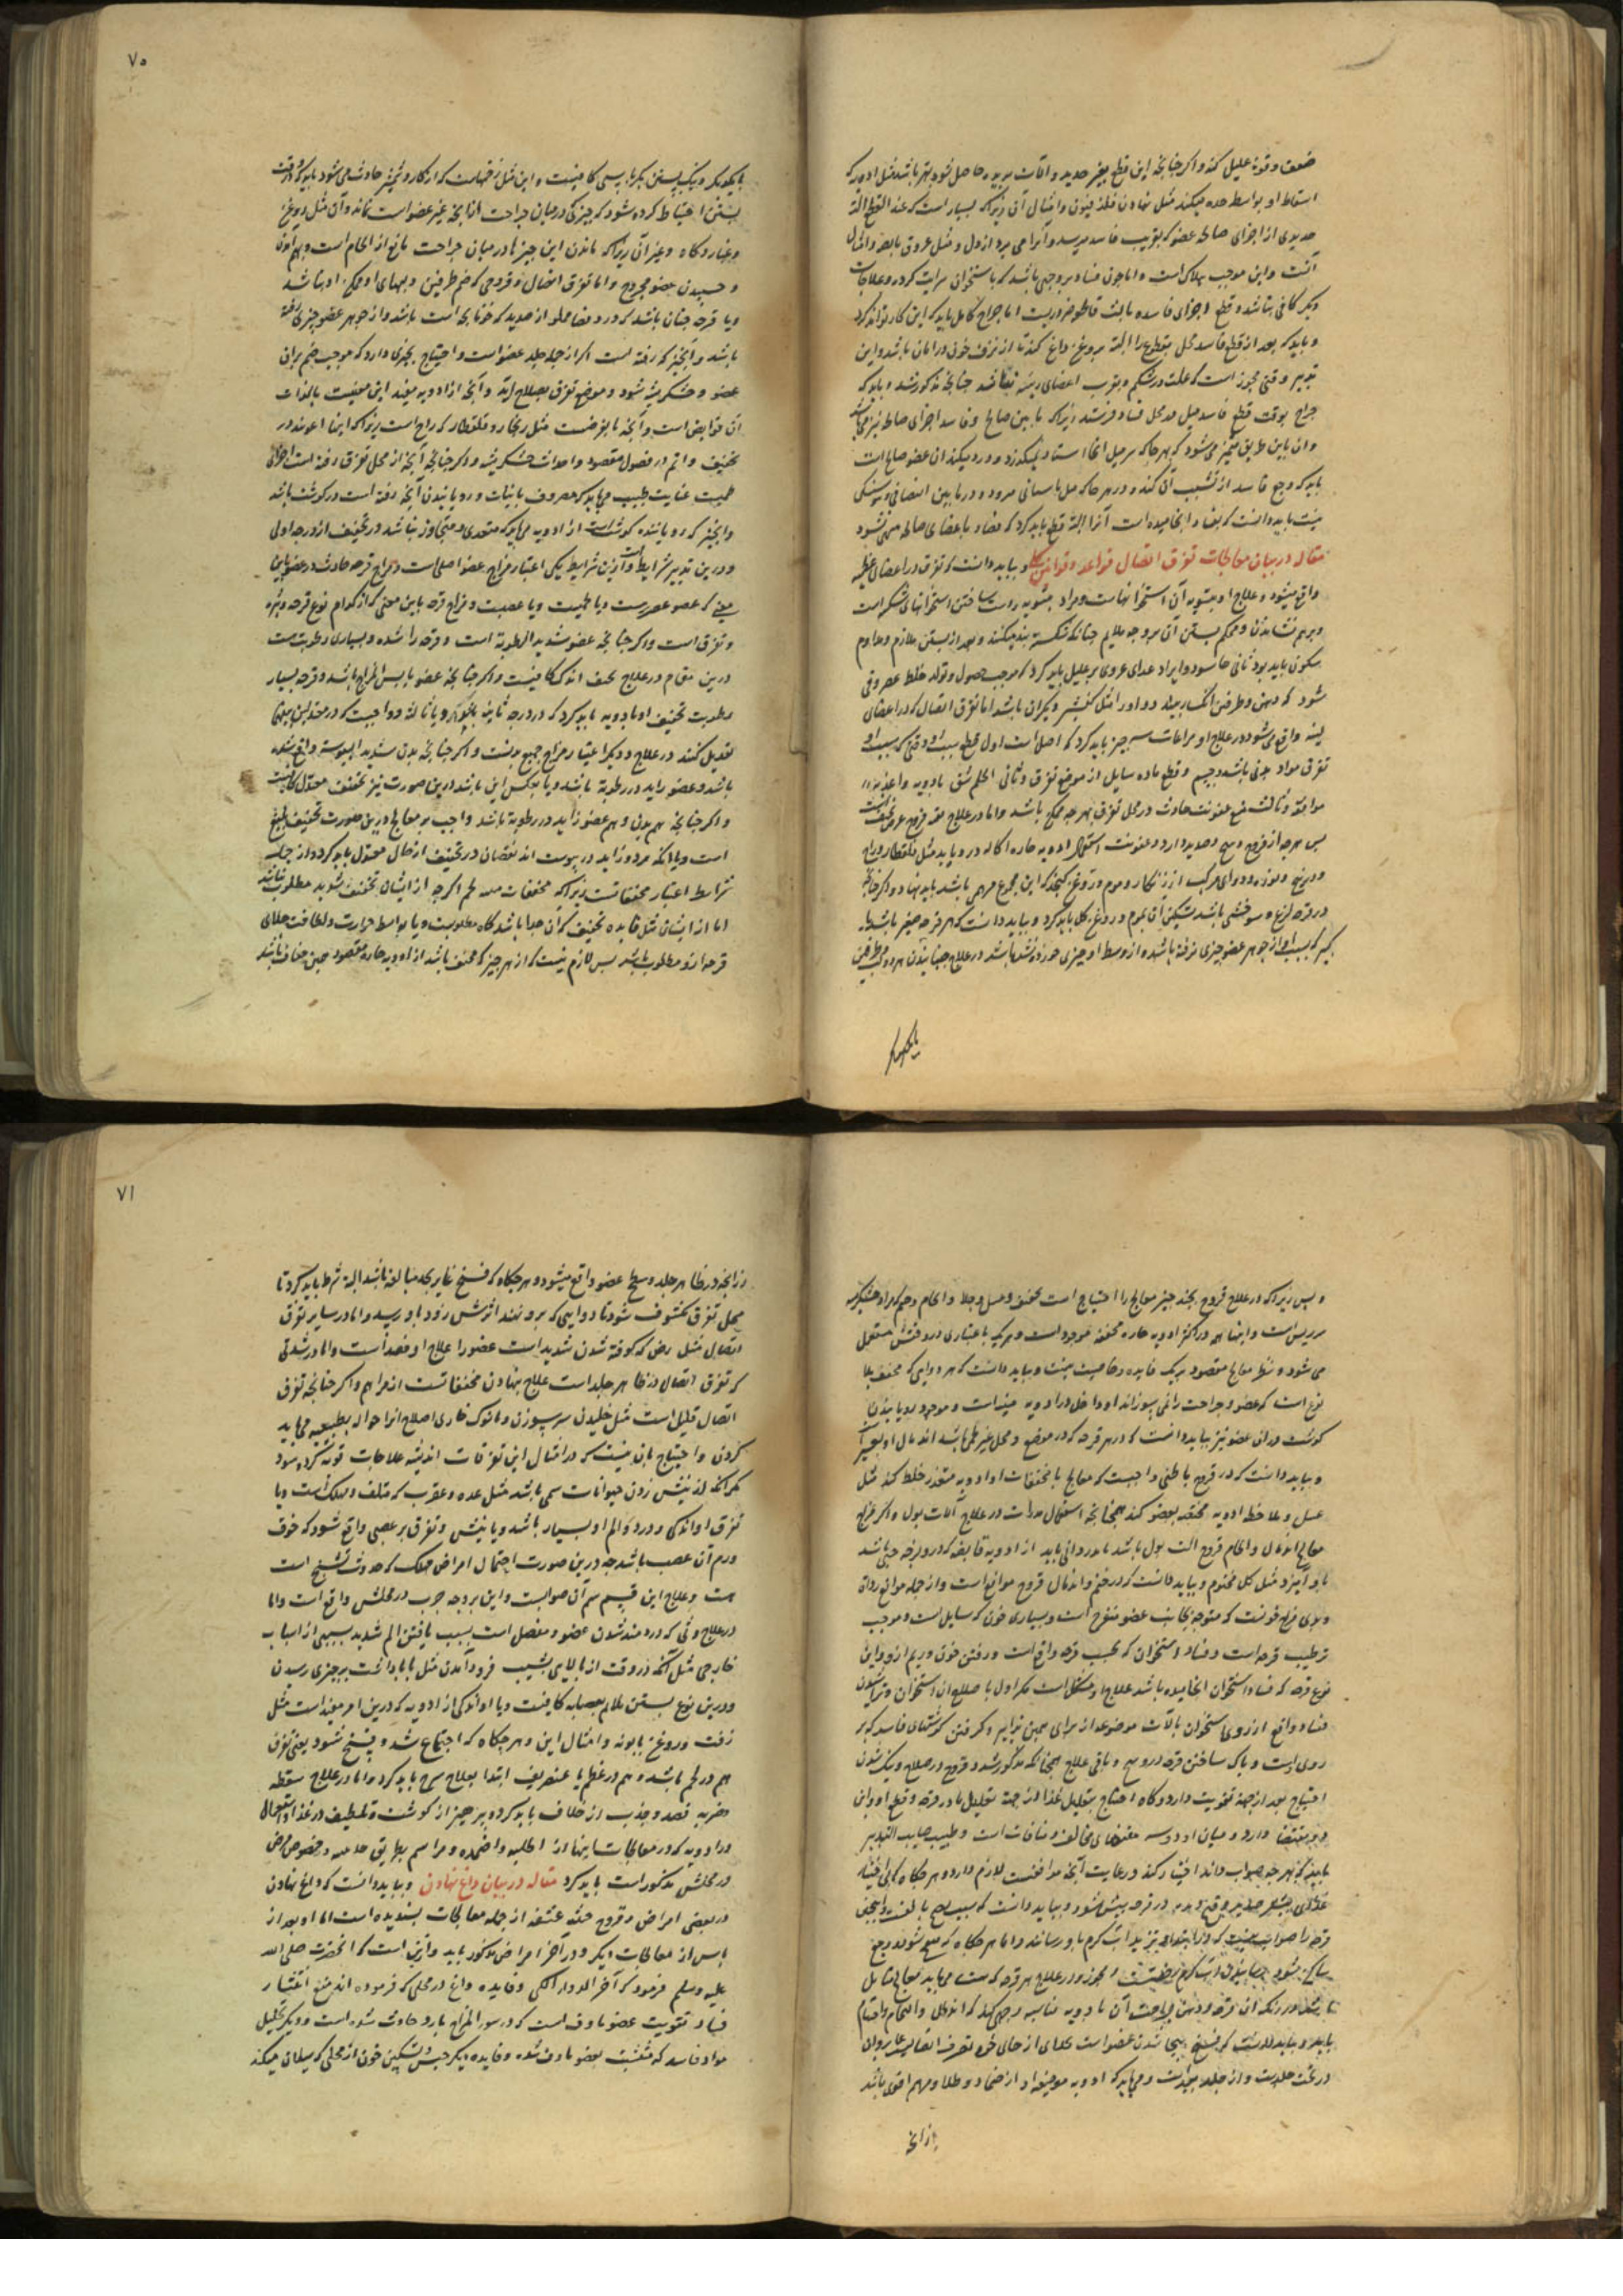 ضعف و قوت علیل کند و اکر چنانچه این قطع بغیر حدید و آلات برنده حاصل شود بهتر باشد مثل ادویه که
اسقاط او بواسطه حده میکند مثل نهادن فلدفیون و امثال آن زیرا که بسیار است که عند القطع آلة
حدیدی از اجزای صالحه عضو که بقریب فاسد میرسد و آنرا می برد از دل و مثل عروق نابضه و امثال
آنست و این موجب هلاک است و اما چون فساد بر وجهی باشد که باستخوان سرایت کرده و علاجات
دیکر کافی نباشد و قطع اجزای فاسده بالبته قاطع ضروریست اما جراح کامل باید که این کار تواند کرد
و باید که بعد از قطع فاسد محل مقطوع را البته بروغن داغ کند تا از نزف خون در امان باشد و این
تدبیر وقتی مجوز است که علت در شکم و بقرب اعضای رئیسه نباشد چنانچه مذکور شد و باید که
جراح بوقت قطع فاسد میل در محل فساد فرستد زیرا که ما بین صالح و فاسد اجزای صالحه نیز می باشد
و آن باین طریق متمیز می شود که بهر جا که سر میل آنجا استاد و نمیکذرد و درد میکند آن عضو صالح است
باید که وجع فاسد از تشبب آن کند و در هر جا که میل باسانی میرود و در ما بین التصاقی و تمسکی
نیست باید دانست که بفساد انجامیده است آنرا البته قطع باید کرد که فساد باعضای صالحه منتهی نشود
مقاله در بیان معالجات تفرق اتصال قواعد و قوانین کلی و بباید دانست که تفرق در اعضای عظیمه
واقع میشود و علاج او بتسویه آن استخوانهاست و مراد بتسویه راست ساختن استخوانهای شکسته است
و برهم نشاندن و محکم بستن آن بر وجه ملایم چنانکه شکسته بند میکنند و بعد از بستن ملازم و مداوم
سکون باید بود ثانی حاسود و ایراد غذای غروی بر علیل باید کرد که موجب حصول و تولد خلط غضروفی
شود که دهن و طرفین انکسار بپیوندد و او را مثل کفشیر دیکران باشد اما تفرق اتصال که در اعضای
لینه واقع می شود در علاج او مراعات سه چیز باید کرد که اصل است اول قطع سبب او وقتی که سبب او
تفرق مواد بدنی باشد و جسم و قطع ماده سایل از موضع تفرق و ثانی الحام شق بادویه و اغذیه
موافقه و ثالث منع عفونت حادث در محل تفرق بهر چه ممکن باشد و اما در علاج
پس هر چه از قروح وسخ و صدید دارد و عفونت استعمال ادویه حاره اکاله در و باید مثل قلقطار و زاج
و زرنیخ و نوره و دوای مرکب از زنکار و موم و روغن کنجد که این مجموع مرهمی باشد باید نهاد و اکر چنانچه
در قرحه لزع و سوزشی باشد تسکین آن بموم و روغن کل باید کرد و بباید دانست که هر قرحه صغیر باشد
که بسبب او از جوهر عضو چیزی نرفته باشد و از وسط او چیزی خورده نشده باشد در علاج چسبانیدن هر دو طرفین
بایکدیکر
۷۰
بایکدیکر و نیک بستن بکرباسی کافیست و این مثل زخمهاست که از کارد و شمشیر حادث می شود باید که در وقت
بستن احتیاط کرده شود که چیزی در میان جراحت از آنچه غیر عضو است نماند و آن مثل روغن
و غبار و کاه و غیر آن زیرا که ماندن این چیزها در میان جراحت مانع از الحام است
و چسبیدن عضو مجروح و اما تفرق اتصال و قروحی که ضم طرفین و بهمهای او ممکن او نباشد
و یا قرحه چنان باشد که در و فضا مملو از صدید که خون آبی است باشد و از جوهر عضو چیزی رفته
باشد و آنچیز که رفته است اکر از جمله جلد عضو است و احتیاج بچیزی دارد که موجب ختم بر آن
عضو و خشکریشه شود و موضع تفرق بصلاح آید و آنچه از ادویه مفید این معنیست بالذات
آن قوابض است و آنچه بالعرض است مثل زنجار و قلقطار که زاج است زیرا که اینها اعونند در
تجفیف و اتم در حصول مقصود و احداث خشکریشه و اکر چنانچه آنچه از محل تفرق رفته است اجزای
لحمیت عنایت طبیب می باید که مصروف بانبات و رویانیدن آنچه رفته است در کوشت باشد
و آنچیز که رویاننده کوشت است از ادویه می باید که متعدی و متجاوز نباشد در تجفیف از درجه اولی
و درین تدبیر شرایط است و ازین شرایط یکی اعتبار مزاج عضو اصلی است و مزاج قرحه حادث در عضو باین
معنی که عضو عصریست و یا لحمیت و یا عصبیت و مزاج قرحه باین معنی که از کدام نوع قرحه و بثره
و تفرق است و اکر چنانچه عضو شدید الرطوبة است و قرحه را شده و بسیاری رطوبت نیست
درین مقام در علاج مجفف اندکی کافیست و اکر چنانچه عضو یابس المزاج باشد و قرحه بسیار
رطوبت تجفیف او بادویه باید کرد که در درجه ثانیه یا ثالثه و واجبست که در معتدلین بینهما
تعدیل کنند در علاج و دیکر اعتبار مزاج جمیع بدنست و اکر چنانچه بدن شدید الیبوسة واقع شده
باشد و عضو زاید در رطوبة باشد و یا بعکس این باشد درین صورت نیز مجفف معتدل کافیست
و اکر چنانچه هم بدن و هم عضو زاید در رطوبة باشد واجب بر معالج درین صورت تجفیف بلیغ
است و یا آنکه هر دو زاید در یبوست اند نقصان در تجفیف از حال معتدل باید کرد و از جمله
شرایط اعتبار مجففاتست زیرا که مجففات منبت لحم اکر چه از ایشان تجفیف شدید مطلوب نباشد
اما از ایشان مثل فایده تجفیف که آن جلا باشد کاه مطلوبست و یا بواسطه حرارت و لطافت جلای
قرحه از و مطلوب باشد پس لازم نیست که از هر چیز که مجفف باشد از ادویه حاره مقصود همین جفاف باشد
و بس زیرا که در علاج قروح بچند چیز معالج را احتیاج است تجفیف و غسل و جلا و الحام و ختم که مراد خشکریشه
بر ریش است و اینها همه در اکثر ادویه حاره مجففه موجود است و هر یک باعتباری در وقتش مستعمل
می شود و نظر معالج مقصود بر یک فایده و خاصیت نیست و بباید دانست که هر دوایی که مجفف بلا
لذع است که عضو و جراحت را نمی سوزاند او داخل در ادویه مفید است و موجب رویانیدن
کوشت در آن عضو نیز بباید دانست که در هر قرحه که در موضع و محل غیر لحمی باشد اندمال او بعسر است
و بباید دانست که در قروح باطنی واجبست که معالج با مجففات او ادویه منفذه خلط کند مثل
عسل و ملاحظه ادویه مختصه بعضو کند همچنانچه استعمال مدرات در علاج آلات بول و اکر غرض
معالج اندمال و الحام قروح آلت بول باشد مدرواتی باید از ادویه قابضه که در و لزوجه جبی باشد
با او آمیزد مثل کل مختوم و بباید دانست که در ختم و اندمال قروح موانع است و از جمله موانع رداءة
و بدی مزاج خونست که متوجه بجانب عضو متقرح است و بسیاری خون که سایل است و موجب
ترطیب قرحه است و فساد استخوان که بجنب قرحه واقع است و رفتن خون و ریم از و و این
نوع قرحه که بفساد استخوان انجامیده باشد علاج او مشکل است مکر اول باصلاح آن استخوان و تراشیدن
فساد واقع از روی استخوان بآلات موضوعه از برای همین تدابیر و کرفتن کوشتهای فاسد که بر
روی اوست و پاک ساختن قرحه از وسخ و باقی علاج همچنانکه مذکور شد و قروح در صلاح و نیک شدن
احتیاج بعد از جهة تقویت دارد و کاه احتیاج بتقلیل غذا از جهة تقلیل ماده قرحه و قطع او و این
دو مقتضا دارد و میان او دو سه مقتضای مخالف و منافات است و طبیب صایب التدبیر
باید که هر چه صواب داند اختیار کند و رعایت آنچه موافقست لازم دارد و هر جا که
قرحه را صواب نیست که در ابتدا و تزید آب کرم باو رسانند و اما هر جا که نضج شود و وجع
ساکن شود رسانیدن آب کرم رخصتست و مجوز و در علاج هر قرحه که هست می باید معالج مایل
باید و بباید دانست که فسخ جدا شدن عضو است
در تحت جلدست و از جلد بعید است و می باید که ادویه موضوعه او از ضماد و طلا و مرهم اقوی باشد
از آنچه
۷۱
از آنچه در ظاهر جلد و سطح عضو واقع میشود و هر جا که فسخ غایر بحد مبالغه باشد البته شرط باید کرد تا
محل تفرق مکشوف شود تا دوایی که برو نهند اثرش زود باو رسد و اما در سایر تفرق
اتصال مثل رض که کوفته شدن شدید است عضو را علاج او فصد است و اما در شدقی
که تفرق اتصال در ظاهر جلد است علاج نهادن مجففاتست از مراهم و اکر چنانچه تفرق
اتصال قلیل است مثل خلیدن سر سوزن و یا نوک خاری اصلاح آنرا حواله بطبیعت می باید
کردن و احتیاج باز نیست که در امثال این تفرقات اندیشه علاجات قویه کرده شود
مکر آنکه از نیش زدن حیوانات سمی باشد مثل عده و عقرب که متلف و مهلک است و یا
تفرق او اندکی و درد و الم او بسیار باشد و یا نیش و تفرق بر عصبی واقع شود که خوف
ورم آن عصب باشد چه درین صورت احتمال امراض مهلک که حدوث تشنج است
هست و علاج این قسم سم آن صوابست و این بر وجه مجرب در محلش واقع است و اما
در علاج وثی که دردمند شدن عضو و مفصل است بسبب یافتن الم شدید بسببی از اسباب
خارجی مثل آنکه در وقت از بالایی بشیب فرود آمدن مثل پا بآفت بر چیزی رسیدن
و درین نوع بستن ملایم بعصابه کافیست و یا اندکی از ادویه که درین امر مفید است مثل
زفت و روغن بابونه و امثال این و هر جا که اجتماع شدخ و فسخ شود یعنی تفرق
هم در لحم باشد و هم در عظم یا غضروف ابتدا بعلاج سریع باید کرد و اما در علاج سقطه
و ضربه فصد و جذب از خلاف باید کرد و پرهیز از کوشت و تلطیف در غذا و استعمال
در ادویه که در معالجات اینها از اطلیه و اضمده و مراهم بطریق علاحده و بخصوص مرض
در محلش مذکور است باید کرد مقاله در بیان داغ نهادن و بباید دانست که داغ نهادن
در بعضی امراض و قروح خبیثه عتیقه از جمله معالجات پسندیده است اما او بعد از
یاس از معالجات دیکر و در آخر امراض مذکور باید و ازین است که آنحضرت صلی الله
علیه و سلم فرمود که آخر الدواء الکی و فایده داغ در محلی که فرموده اند منع انتشار
فساد و تقویت عضو ماوف است که در سوء المزاج بارد حادث شده است و دیکر تحلیل
مواد فاسد که متشبث بعضو ماوف شده و فایده دیکر حبس و تسکین خون از محلی که سیلان میکند